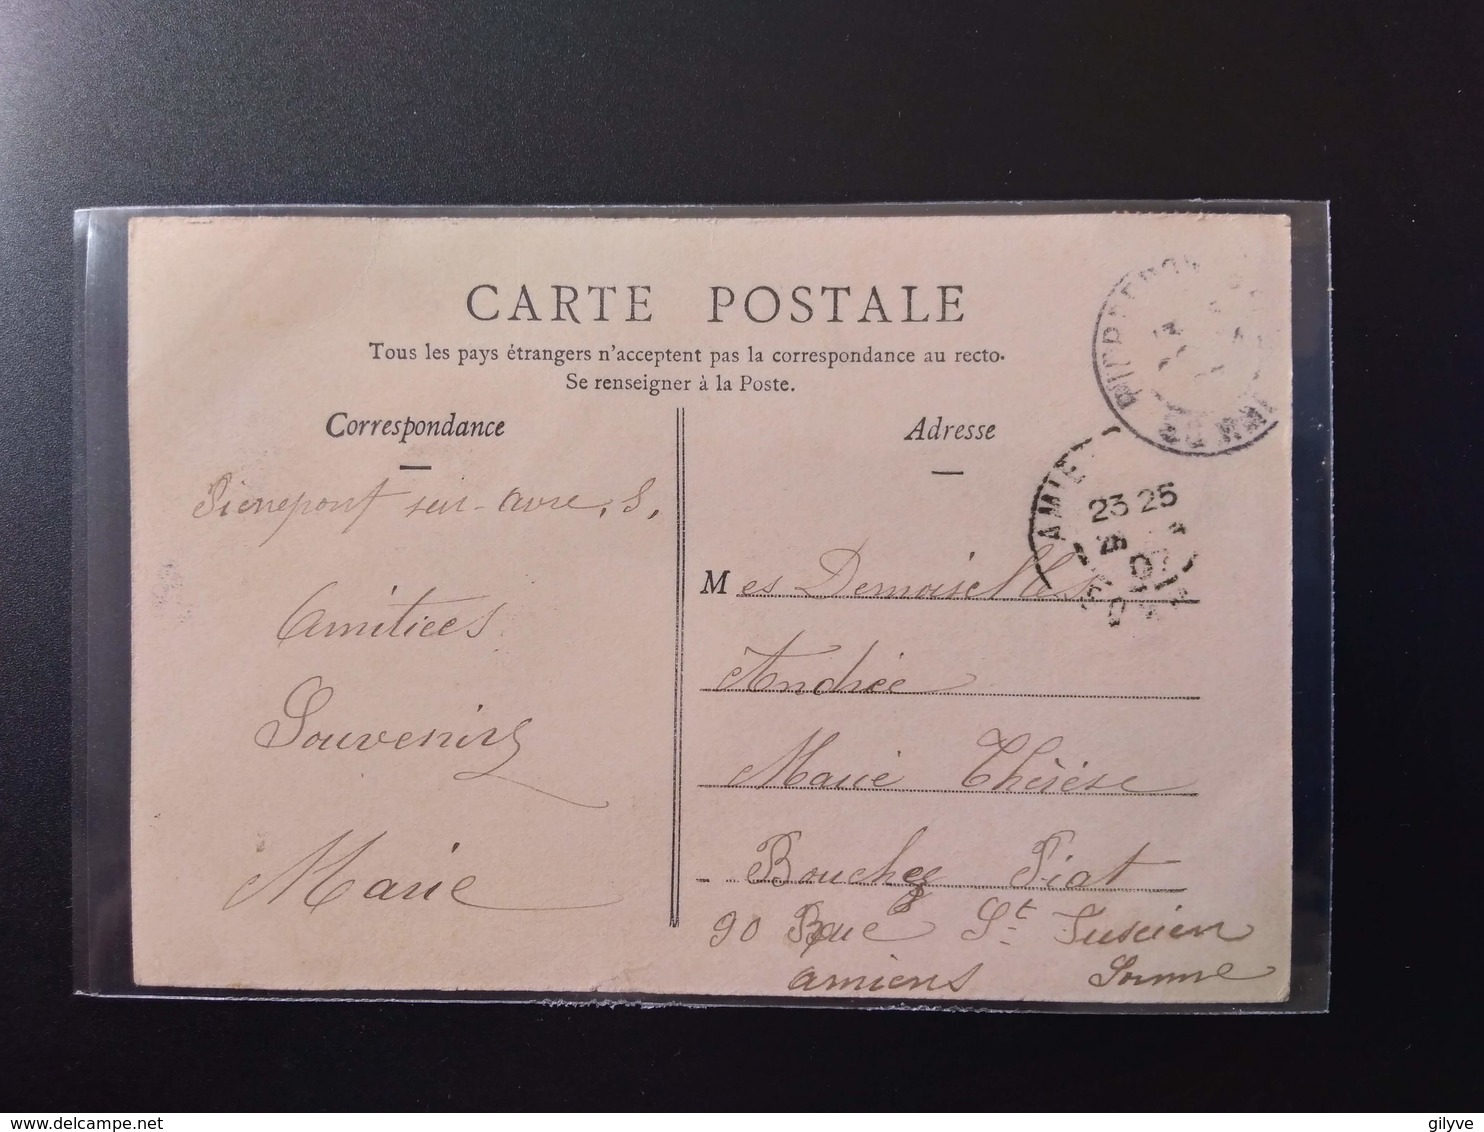 CARTE POSTALE
Tous les pays étrangers n'acceptent pas la correspondance au recto.
Se renseigner à la Poste.
Correspondance
Pierrepont sur-avre. S.
Amitiees
Souvenirs
Marie
Adresse
AMIE
23 25
07
Mes Demoiselles
Andrée
Marie Thérèse
Bouchez Piat
90 Rue St Fuscien
amiens Somme
delcampe.net
gilyve